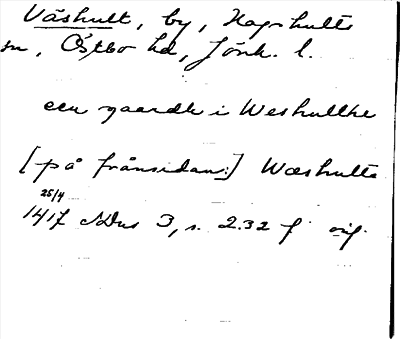 Väshult, by, Hagshults
sn, Östbo hd, Jönk. l.
een gaardh i Weshullthe
[på frånsidan:] Wæshulta
25/4
1417 NDus 3, s. 232 f orig.